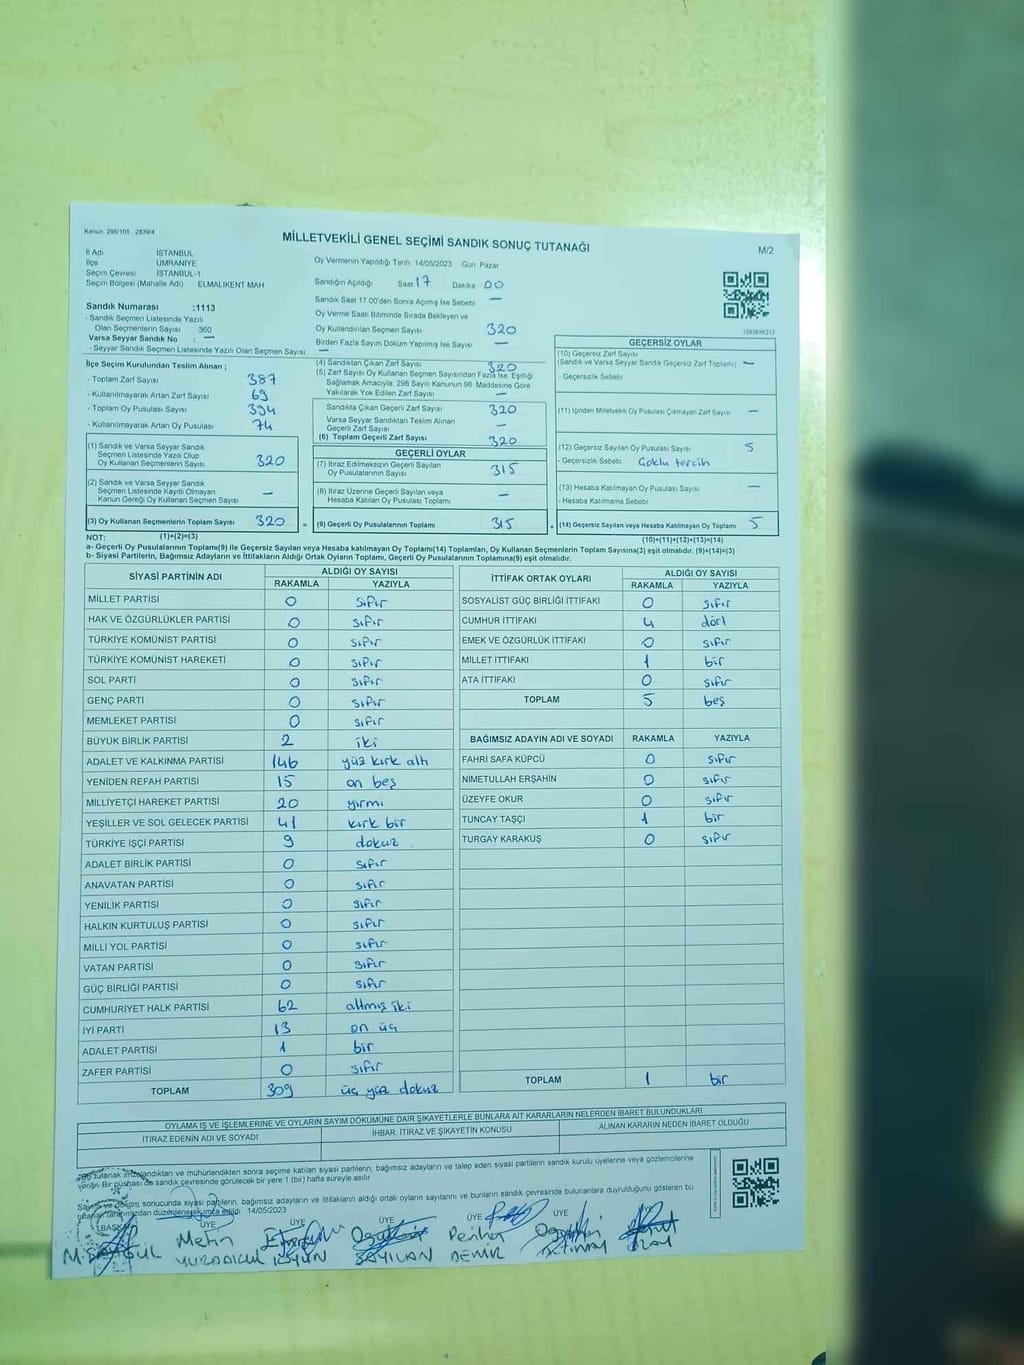 Kanun: 298/105 , 2839/4
MİLLETVEKİLİ GENEL SEÇİMİ SANDIK SONUÇ TUTANAĞI
M/2
İl Adı İSTANBUL
İlçe ÜMRANİYE
Seçim Çevresi İSTANBUL-1
Seçim Bölgesi (Mahalle Adı) ELMALIKENT MAH
Sandık Numarası :1113
- Sandık Seçmen Listesinde Yazılı
Olan Seçmenlerin Sayısı 360
Varsa Seyyar Sandık No : —
- Seyyar Sandık Seçmen Listesinde Yazılı Olan Seçmen Sayısı —
Oy Vermenin Yapıldığı Tarih :14/05/2023 Gün: Pazar
Sandığın Açıldığı Saat 17 Dakika 00
Sandık Saat 17.00'den Sonra Açılmış İse Sebebi —
Oy Verme Saati Bitiminde Sırada Bekleyen ve
Oy Kullandırılan Seçmen Sayısı 320
Birden Fazla Sayım Döküm Yapılmış İse Sayısı —
İlçe Seçim Kurulundan Teslim Alınan ;
- Toplam Zarf Sayısı 387
- Kullanılmayarak Artan Zarf Sayısı 69
- Toplam Oy Pusulası Sayısı 394
- Kullanılmayarak Artan Oy Pusulası Sayısı 74
(1) Sandık ve Varsa Seyyar Sandık
Seçmen Listesinde Yazılı Olup
Oy Kullanan Seçmenlerin Sayısı 320
(2) Sandık ve Varsa Seyyar Sandık
Seçmen Listesinde Kayıtlı Olmayan
Kanun Gereği Oy Kullanan Seçmen Sayısı —
(3) Oy Kullanan Seçmenlerin Toplam Sayısı 320
(1)+(2)=(3)
(4) Sandıktan Çıkan Zarf Sayısı 320
(5) Zarf Sayısı Oy Kullanan Seçmen Sayısından Fazla İse, Eşitliği
Sağlamak Amacıyla; 298 Sayılı Kanunun 98. Maddesine Göre
Yakılarak Yok Edilen Zarf Sayısı —
Sandıkta Çıkan Geçerli Zarf Sayısı 320
Varsa Seyyar Sandıktan Teslim Alınan
Geçerli Zarf Sayısı —
(6) Toplam Geçerli Zarf Sayısı 320
GEÇERLİ OYLAR
(7) İtiraz Edilmeksizin Geçerli Sayılan
Oy Pusulalarının Sayısı 315
(8) İtiraz Üzerine Geçerli Sayılan veya
Hesaba Katılan Oy Pusulası Toplamı —
= (9) Geçerli Oy Pusulalarının Toplamı 315
GEÇERSİZ OYLAR
(10) Geçersiz Zarf Sayısı
(Sandık ve Varsa Seyyar Sandık Geçersiz Zarf Toplamı) —
- Geçersizlik Sebebi
(11) İçinden Milletvekili Oy Pusulası Çıkmayan Zarf Sayısı —
(12) Geçersiz Sayılan Oy Pusulası Sayısı 5
- Geçersizlik Sebebi Çoklu tercih
(13) Hesaba Katılmayan Oy Pusulası Sayısı —
- Hesaba Katılmama Sebebi
+ (14) Geçersiz Sayılan veya Hesaba Katılmayan Oy Toplamı 5
(10)+(11)+(12)+(13)=(14)
NOT:
a- Geçerli Oy Pusulalarının Toplamı(9) ile Geçersiz Sayılan veya Hesaba katılmayan Oy Toplamı(14) Toplamları, Oy Kullanan Seçmenlerin Toplam Sayısına(3) eşit olmalıdır. (9)+(14)=(3)
b- Siyasi Partilerin, Bağımsız Adayların ve İttifakların Aldığı Ortak Oyların Toplamı, Geçerli Oy Pusulalarının Toplamına(9) eşit olmalıdır.
SİYASİ PARTİNİN ADI ALDIĞI OY SAYISI
RAKAMLA YAZIYLA
MİLLET PARTİSİ 0 sıfır
HAK VE ÖZGÜRLÜKLER PARTİSİ 0 sıfır
TÜRKİYE KOMÜNİST PARTİSİ 0 sıfır
TÜRKİYE KOMÜNİST HAREKETİ 0 sıfır
SOL PARTİ 0 sıfır
GENÇ PARTİ 0 sıfır
MEMLEKET PARTİSİ 0 sıfır
BÜYÜK BİRLİK PARTİSİ 2 iki
ADALET VE KALKINMA PARTİSİ 146 yüz kırk altı
YENİDEN REFAH PARTİSİ 15 on beş
MİLLİYETÇİ HAREKET PARTİSİ 20 yirmi
YEŞİLLER VE SOL GELECEK PARTİSİ 41 kırk bir
TÜRKİYE İŞÇİ PARTİSİ 9 dokuz
ADALET BİRLİK PARTİSİ 0 sıfır
ANAVATAN PARTİSİ 0 sıfır
YENİLİK PARTİSİ 0 sıfır
HALKIN KURTULUŞ PARTİSİ 0 sıfır
MİLLİ YOL PARTİSİ 0 sıfır
VATAN PARTİSİ 0 sıfır
GÜÇ BİRLİĞİ PARTİSİ 0 sıfır
CUMHURİYET HALK PARTİSİ 62 altmış iki
İYİ PARTİ 13 on üç
ADALET PARTİSİ 1 bir
ZAFER PARTİSİ 0 sıfır
TOPLAM 309 üç yüz dokuz
İTTİFAK ORTAK OYLARI ALDIĞI OY SAYISI
RAKAMLA YAZIYLA
SOSYALİST GÜÇ BİRLİĞİ İTTİFAKI 0 sıfır
CUMHUR İTTİFAKI 4 dört
EMEK VE ÖZGÜRLÜK İTTİFAKI 0 sıfır
MİLLET İTTİFAKI 1 bir
ATA İTTİFAKI 0 sıfır
TOPLAM 5 beş
BAĞIMSIZ ADAYIN ADI VE SOYADI RAKAMLA YAZIYLA
FAHRİ SAFA KÜPCÜ 0 sıfır
NİMETULLAH ERŞAHİN 0 sıfır
ÜZEYFE OKUR 0 sıfır
TUNCAY TAŞÇI 1 bir
TURGAY KARAKUŞ 0 sıfır
TOPLAM 1 bir
OYLAMA İŞ VE İŞLEMLERİNE VE OYLARIN SAYIM DÖKÜMÜNE DAİR ŞİKAYETLERLE BUNLARA AİT KARARLARIN NELERDEN İBARET BULUNDUKLARI
İTİRAZ EDENİN ADI VE SOYADI İHBAR, İTİRAZ VE ŞİKAYETİN KONUSU ALINAN KARARIN NEDEN İBARET OLDUĞU
tutanak imzalandıktan ve mühürlendikten sonra seçime katılan siyasi partilerin, bağımsız adayların ve talep eden siyasi partilerin sandık kurulu üyelerine veya gözlemcilerine
verilir. Bir nüshası da sandık çevresinde görülecek bir yere 1 (bir) hafta süreyle asılır
Sayım ve döküm sonucunda siyasi partilerin, bağımsız adayların ve ittifakların aldığı ortak oyların sayılarını ve bunların sandık çevresinde bulunanlara duyrulduğunu gösteren bu
tutanak tarafımızdan düzenlenerek imza edildi. 14/05/2023
BAŞKAN ÜYE ÜYE ÜYE ÜYE ÜYE ÜYE
Metin
DEMİR